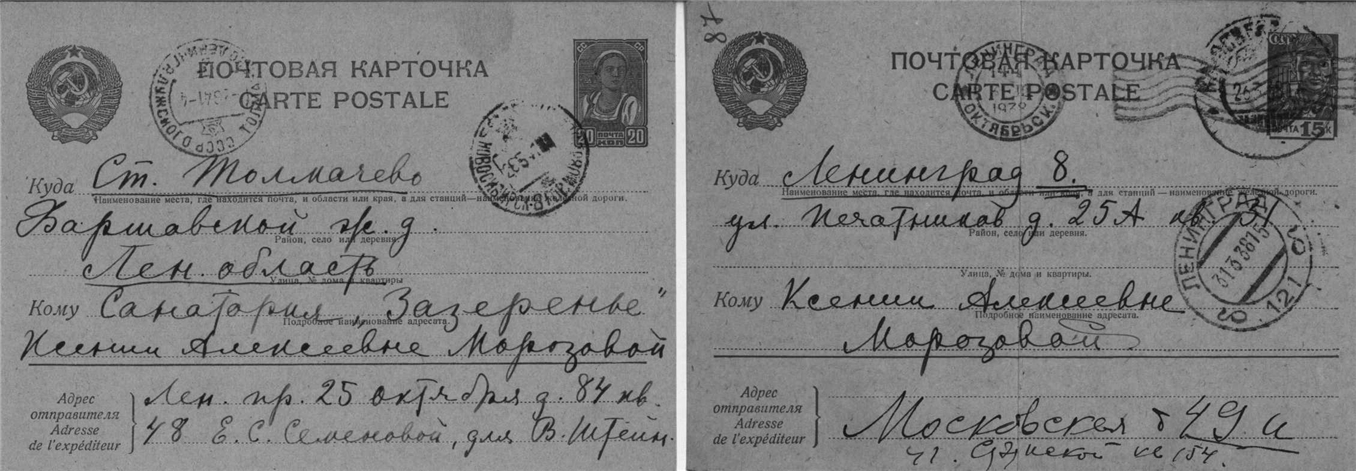 ПОЧТОВАЯ КАРТОЧКА
CARTE POSTALE
20 ПОЧТА 20
КОП
Куда Ст. Толмачево
Наименование места, где находится почта, и области или края, а для станций—наименование железной дороги.
Варшавской ж.д.
Район, село или деревня.
Лен. область
Улица, № дома и квартиры
Кому Санатория „Зазеренье"
Подробное наименование адресата.
Ксении Алексеевне Морозовой
Адрес отправителя
Adresse de l'expéditeur
Лен. пр. 25 октября д. 84 кв.
48 Е. С. Семеновой, для В. Штейн.
87
ПОЧТОВАЯ КАРТОЧКА
CARTE POSTALE
ПОЧТА 15 К
ЛЕНИНГРАД
ОКТЯБРЬСК.
Куда Ленинград 8.
Наименование места, где находится почта, и области или края, а для станций—наименование железной дороги.
ул. Печатников д. 25А кв
Район, село или деревня.
Улица, № дома и квартиры
ЛЕНИНГРАД
31 3 38 15
121
Кому Ксении Алексеевне
Подробное наименование адресата.
Морозовой
Адрес отправителя
Adresse de l'expéditeur
Московская 49
кв 154.